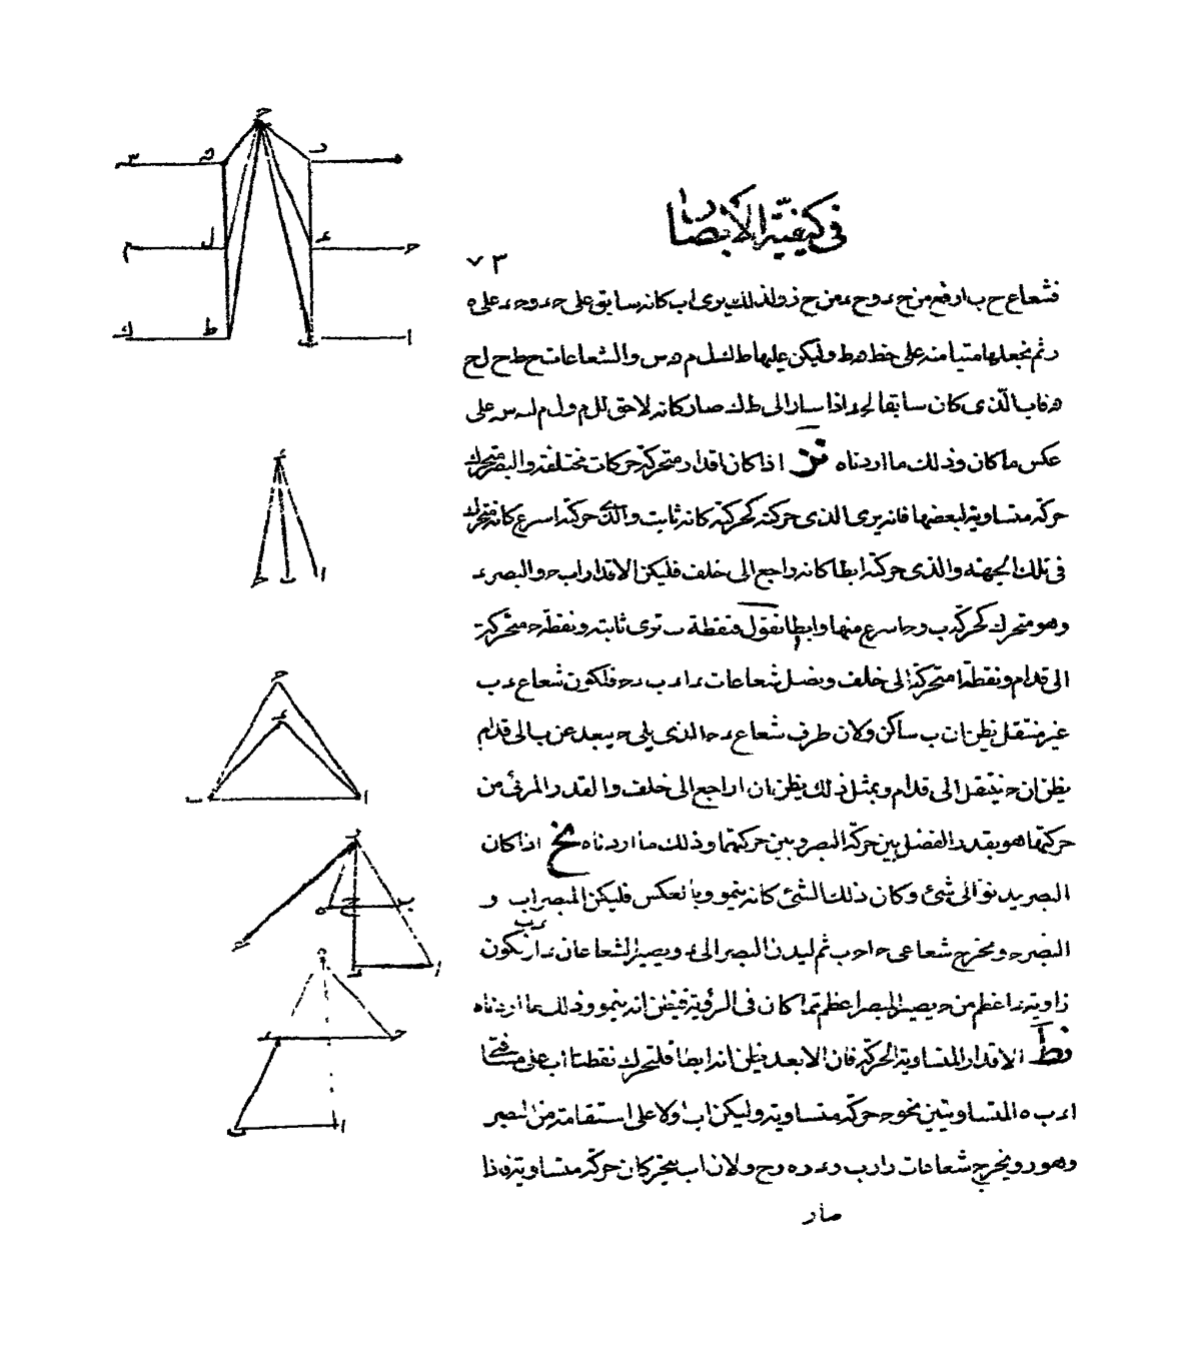 في كيفية الابصار
٧٣
فشعاع ح ب ارفع من ح ء و ح ء من ح ز ولذلك يرى اب كانه سابق على ح ء و ح ء على ه
ر ثم نجعلها متيامنه على خط ه ط وليكن عليها ط ك ل م ه س والشعاعات ح ط ح ل ح
ه فاب الذي كان سابقا لح ء اذا سار الى ط ك صار كانه لاحق لل م ول م لـ ه س على
عكس ما كان وذلك ما اردناه نز اذا كان اقدار متحركة حركات مختلفة والبصر متحرك
حركة متساوية لبعضها فانه يرى الذي حركته كحركته كانه ثابت والذي حركته اسرع كانه متحرك
في تلك الجهة والذي حركته ابطا كانه راجع الى خلف فليكن الاقدار ا ب ح والبصر ء
وهو متحرك كحركة ب و ح اسرع منها و ا ابطا فنقول فنقطة ب ترى ثابتة ونقطة ح متحركة
الى قدام ونقطة ا متحركة الى خلف ونصل شعاعات ء ا ء ب ء ح فلكون شعاع ء ب
غير منتقل يظن ان ب ساكن ولان طرف شعاع ء ح الذي يلي ح يبعد عن ب الى قدام
يظن ان ح ينتقل الى قدام وبمثل ذلك يظن ان ا راجع الى خلف والقدر المرئي من
حركتها هو بقدر الفضل بين حركة البصر وبين حركتهما وذلك ما اردناه نح اذا كان
البصر يدنو الى شئ وكان ذلك الشئ كانه ينمو وبالعكس فليكن المبصر اب و
البصر ح ونخرج شعاعي ح ا ح ب ثم ليدن البصر الى ء ويصير الشعاعان ء ا ء ب فيكون
زاوية ء اعظم من ح يصير المبصر اعظم مما كان في الرؤية فيظن انه ينمو وذلك ما اردناه
نط الاقدار المتساوية الحركة فان الابعد يظن انه ابطا فلتحرك نقطتا اب على مسافتي
ا ء ب ه المتساويتين نحو ح حركة متساوية وليكن اب اولا على استقامة من البصر
وهو ر ونخرج شعاعات ر ا ر ب و ر ء ر ه ر ح ولان اب يتحركان حركة متساوية فاذا
صار